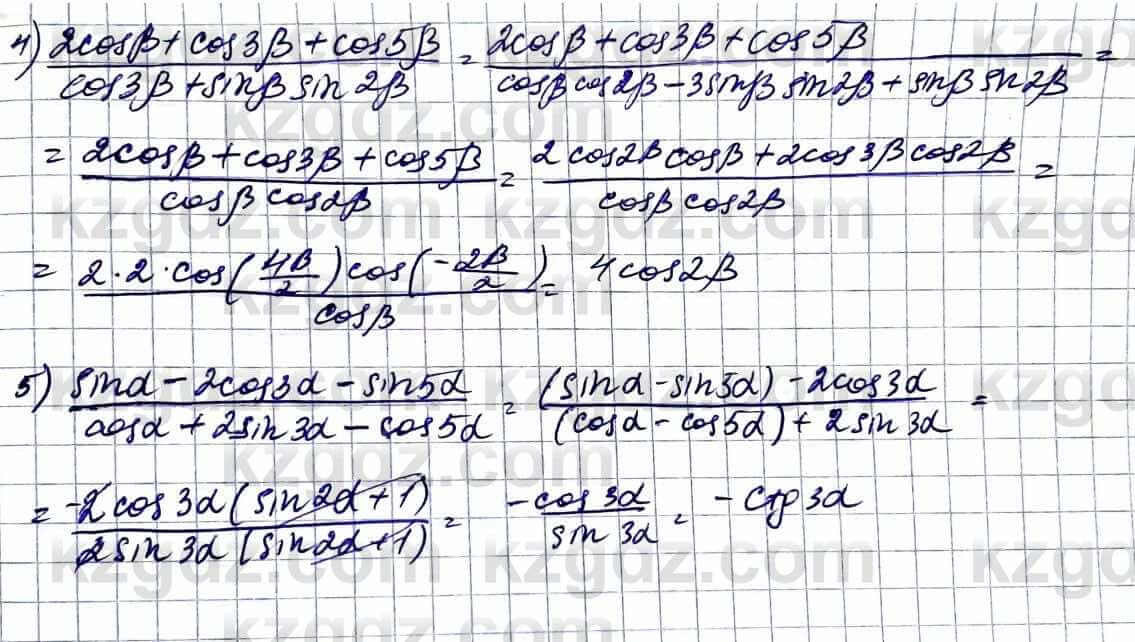 4) (2cosβ + cos3β + cos5β)/(cos3β + sinβ sin 2β) = (2cosβ + cos3β + cos5β)/(cosβ cos2β – 3sinβ sin2β + sinβ sin2β) =
= (2cosβ + cos3β + cos5β)/(cosβ cos2β) = (2 cos2β cosβ + 2cos 3β cos2β)/(cosβ cos2β) =
= (2·2·cos(4β/2) cos(-2β/2))/(cosβ) = 4cos2β
5) (sinα – 2cos3α – sin5α)/(cosα + 2sin 3α – cos5α) = ((sinα – sin5α) – 2cos3α)/((cosα – cos5α) + 2sin 3α) =
= (-2cos 3α (sin2α + 1))/(2sin 3α (sin2α + 1)) = (-cos 3α)/(sin 3α) = - ctg 3α
kzgdz.com